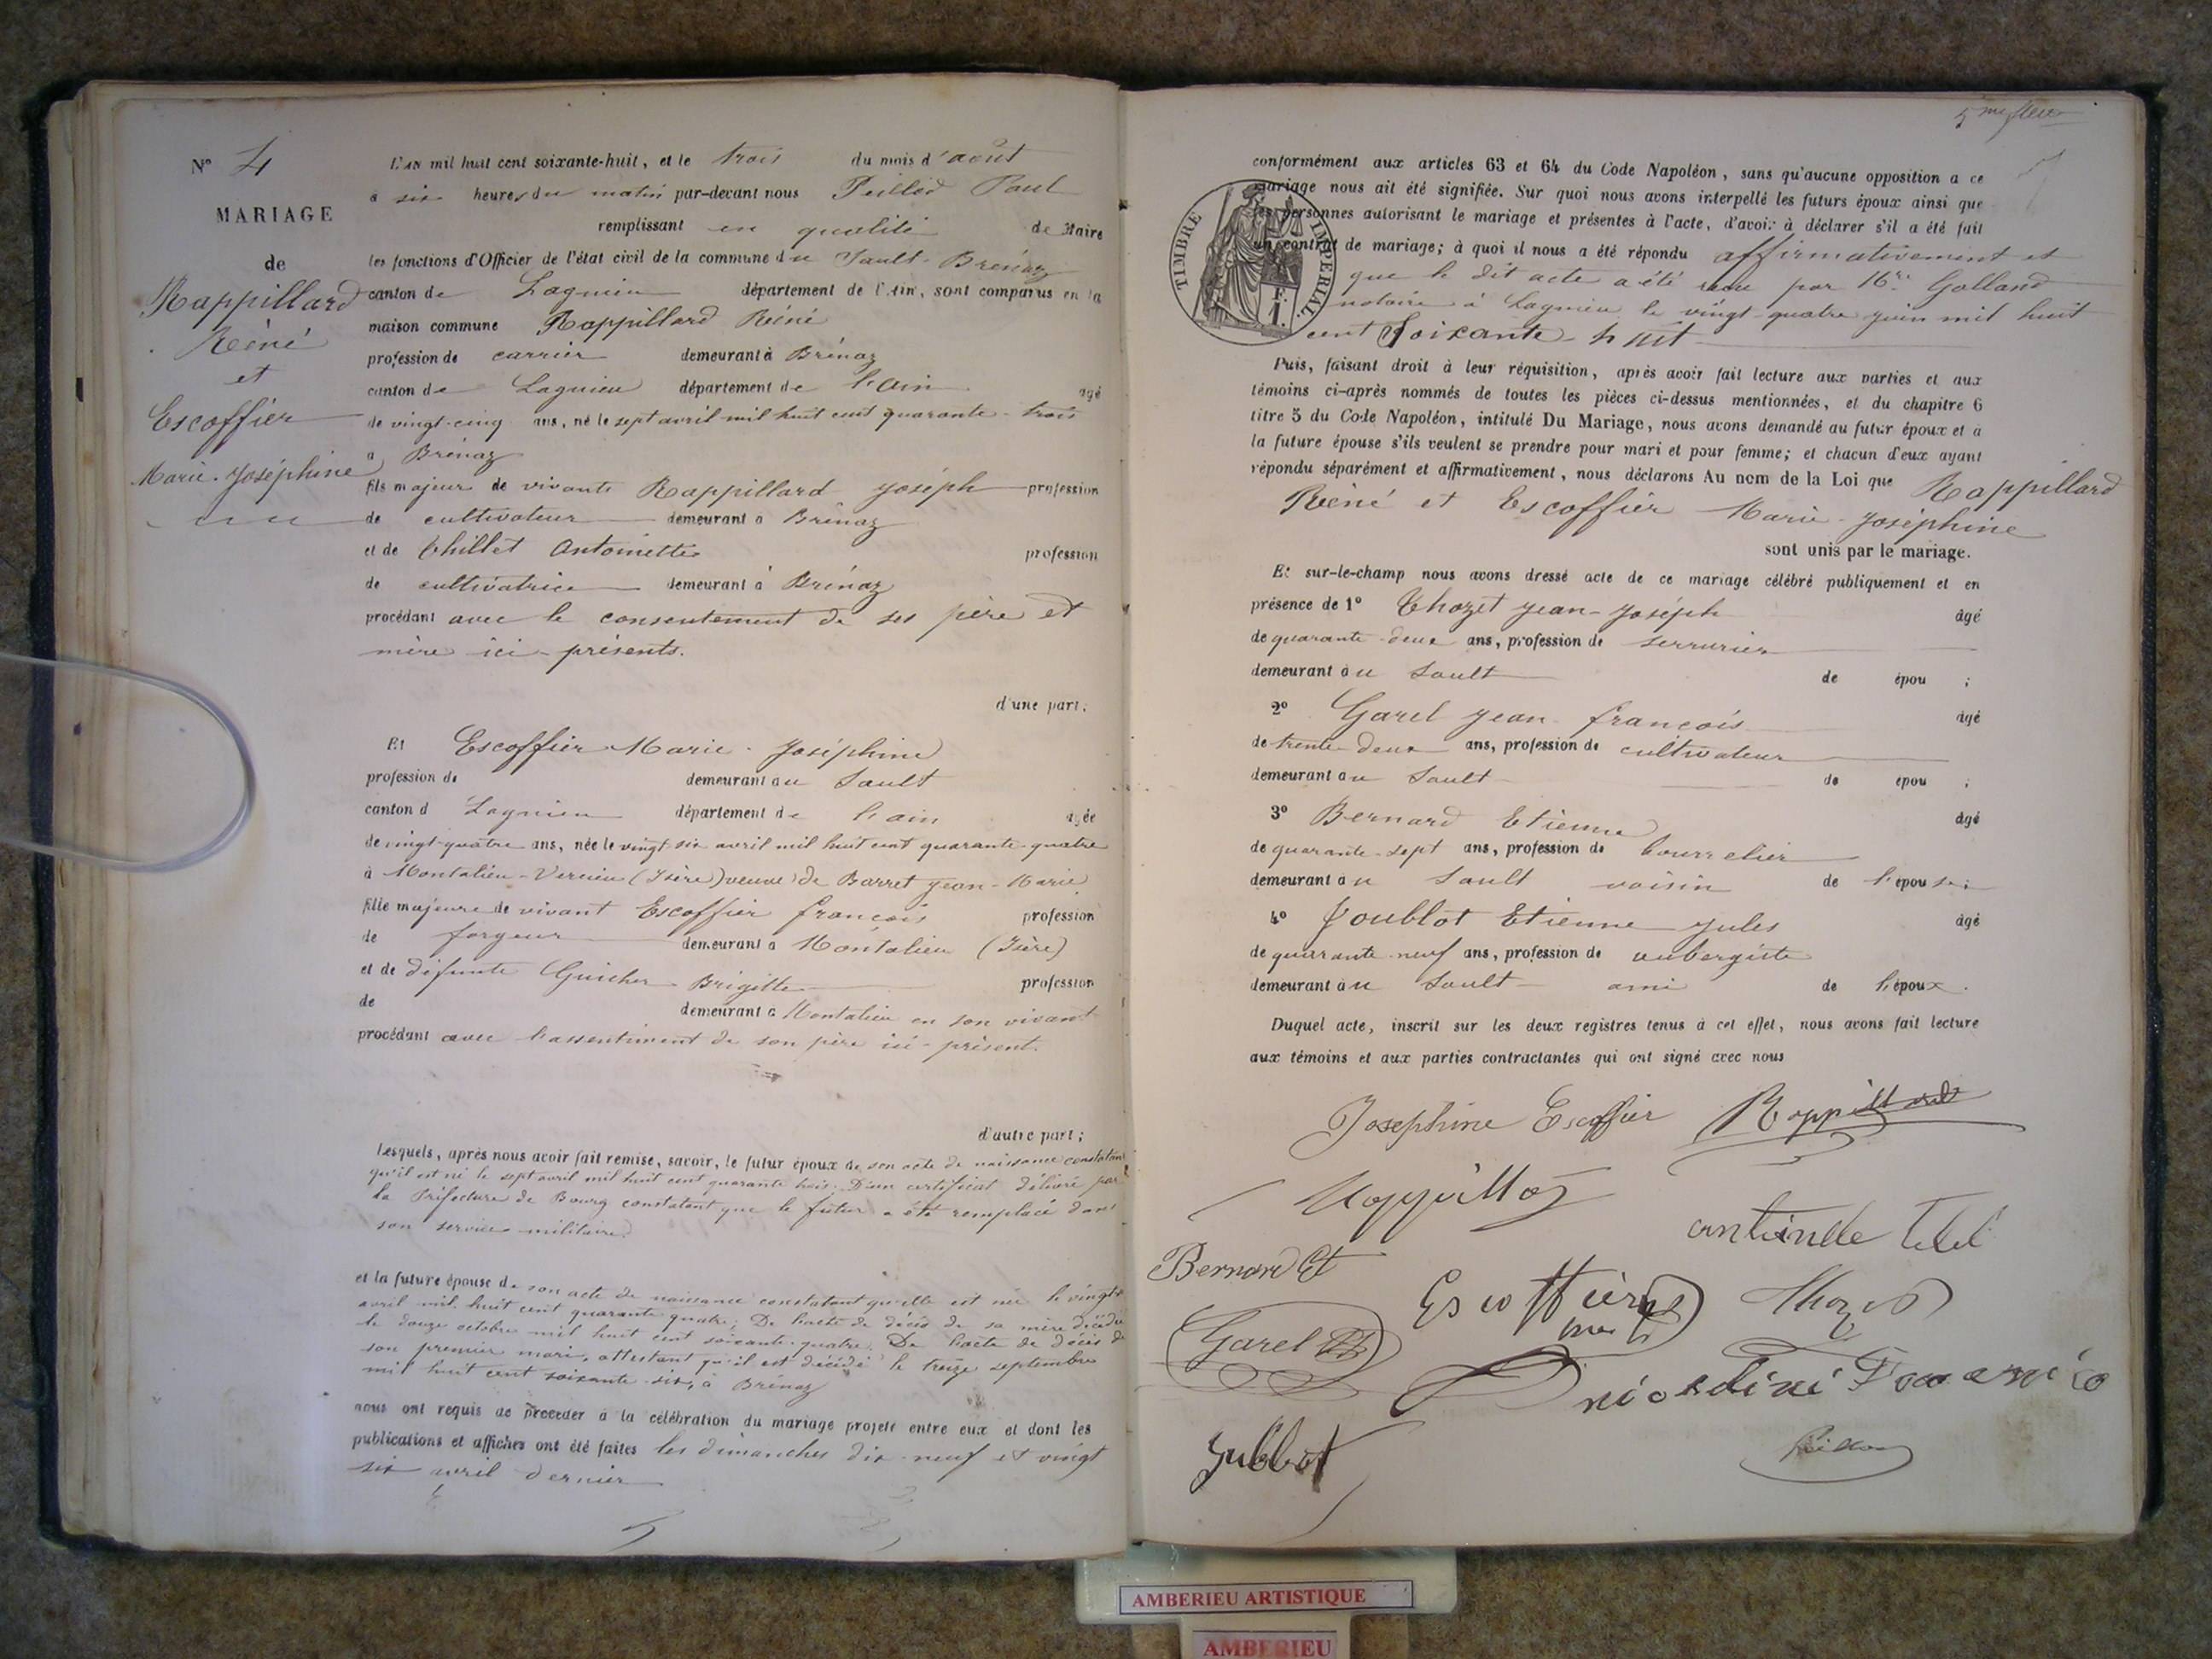 N° 4
MARIAGE
de
Rappillard
Réné
et
Escoffier
Marie-Joséphine
L'AN mil huit cent soixante-huit, et le trois du mois d'août
à six heures du matin par-devant nous Peillod Paul
remplissant en qualité de Maire
les fonctions d'Officier de l'état civil de la commune du Sault-Brénaz
canton de Lagnieu département de l'Ain, sont comparus en la
maison commune Rappillard Réné
profession de carrier demeurant à Brénaz
canton de Lagnieu département de l'ain agé
de vingt-cinq ans, né le sept avril mil huit cent quarante-trois
à Brénaz
fils majeur de vivants Rappillard Joséph profession
de cultivateur demeurant à Brénaz
et de Thillet Antoinette profession
de cultivatrice demeurant à Brénaz
procédant avec le consentement de ses père et
mère ici-présents.
d'une part;
Et Escoffier Marie-Joséphine
profession de demeurant au Sault
canton d Lagnieu département de l'ain agée
de vingt-quatre ans, née le vingt-six avril mil huit cent quarante-quatre
à Montalieu-Vercieu (Isère) veuve de Barret Jean-Marie
fille majeure de vivant Escoffier françois profession
de forgeur demeurant à Montalieu (Isère)
et de défunte Guicher Brigitte profession
de demeurant à Montalieu en son vivant
procédant avec l'assentiment de son père ici-présent.
d'autre part;
Lesquels, après nous avoir fait remise, savoir, le futur époux de son acte de naissance constatant
qu'il est né le sept avril mil huit cent quarante trois. D'un certificat délivré par
la Préfecture de Bourg constatant que le futur a été remplacé dans
son service militaire.
et la future épouse de son acte de naissance constatant qu'elle est née le vingt
avril mil huit cent quarante quatre; De l'acte de décès de sa mère décédée
le douze octobre mil huit cent soixante-quatre. De l'acte de décès de
son premier mari, attestant qu'il est décédé le treize septembre
mil huit cent soixante-six, à Brénaz
nous ont requis de procéder à la célébration du mariage projeté entre eux et dont les
publications et affiches ont été faites les dimanches dix-neuf et vingt
six avril dernier
conformément aux articles 63 et 64 du Code Napoléon, sans qu'aucune opposition a ce
mariage nous ait été signifiée. Sur quoi nous avons interpellé les futurs époux ainsi que
les personnes autorisant le mariage et présentes à l'acte, d'avoir à déclarer s'il a été fait
un contrat de mariage; à quoi il nous a été répondu affirmativement et
que le dit acte a été reçu par Me Golland
notaire à Lagnieu le vingt-quatre juin mil huit
cent soixante-huit
TIMBRE IMPERIAL.
1 F.
Puis, faisant droit à leur réquisition, après avoir fait lecture aux parties et aux
témoins ci-après nommés de toutes les pièces ci-dessus mentionnées, et du chapitre 6
titre 5 du Code Napoléon, intitulé Du Mariage, nous avons demandé au futur époux et à
la future épouse s'ils veulent se prendre pour mari et pour femme; et chacun d'eux ayant
répondu séparément et affirmativement, nous déclarons Au nom de la Loi que Rappillard
Réné et Escoffier Marie-Joséphine
sont unis par le mariage.
Et sur-le-champ nous avons dressé acte de ce mariage célébré publiquement et en
présence de 1° Thozet Jean-Joséph âgé
de quarante-deux ans, profession de serrurier
demeurant au Sault de épou ;
2° Garel Jean françois âgé
de trente-deux ans, profession de cultivateur
demeurant au Sault de épou ;
3° Bernard Etienne âgé
de quarante-sept ans, profession de bourrelier
demeurant au Sault voisin de l'épouse;
4° Joublot Etienne Jules âgé
de quarante-neuf ans, profession de aubergiste
demeurant au Sault ami de l'époux.
Duquel acte, inscrit sur les deux registres tenus à cet effet, nous avons fait lecture
aux témoins et aux parties contractantes qui ont signé avec nous
Josephine Escoffier Rappillard
Bernard Et
Escoffier
Garel
AMBERIEU ARTISTIQUE
AMBERIEU